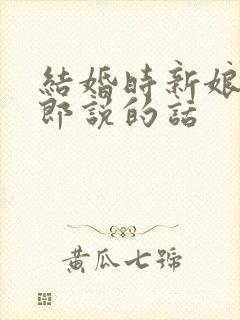 結婚時新娘
郎說的話
黃瓜七號